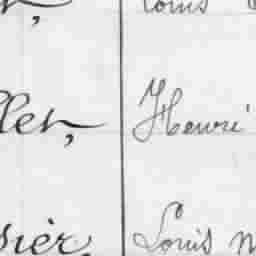 Louis
llet, Henri
sier, Louis